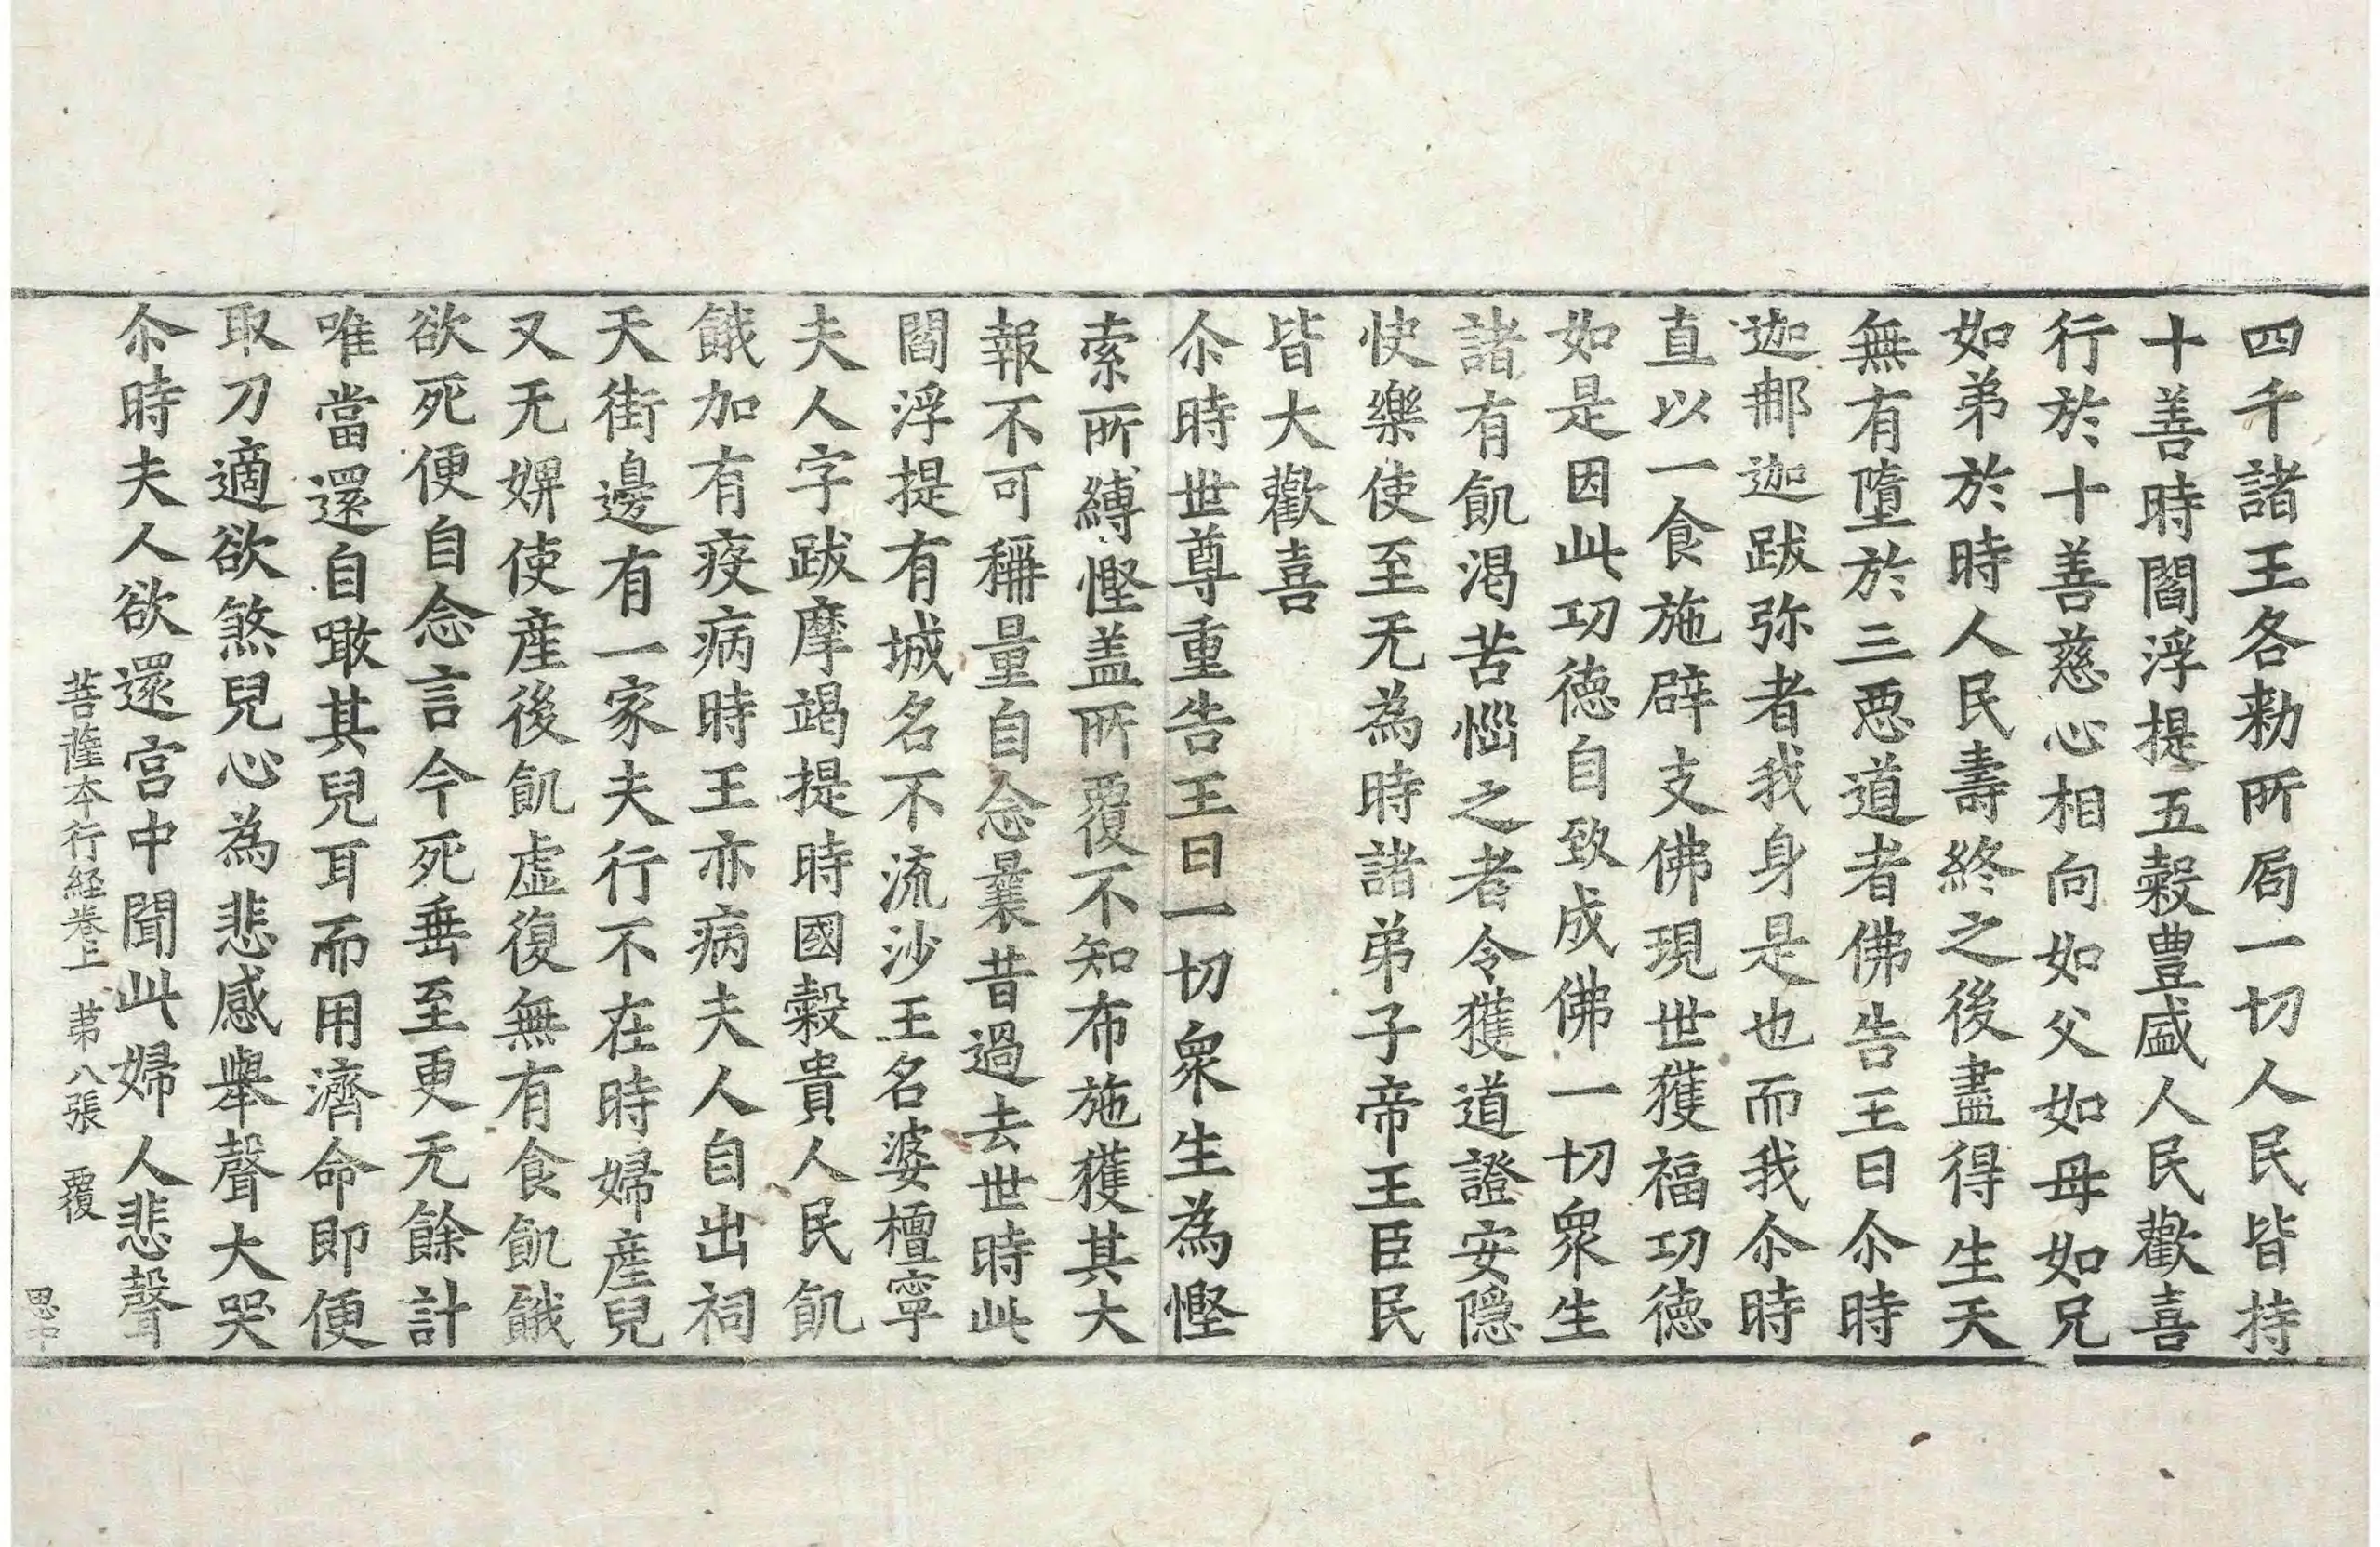 四千諸王各勑所局一切人民皆持
十善時閻浮提五穀豊盛人民歡喜
行於十善慈心相向如父如母如兄
如弟於時人民壽終之後盡得生天
無有墮於三悪道者佛告王曰尒時
迦䣌迦跋弥者我身是也而我尒時
直以一食施辟支佛現世獲福功徳
如是因此功徳自致成佛一切衆生
諸有飢渇苦惱之者令獲道證安隠
快樂使至无為時諸弟子帝王臣民
皆大歡喜
尒時世尊重告王曰一切衆生為慳
索所縛慳盖所覆不知布施獲其大
報不可稱量自念曩昔過去世時此
閻浮提有城名不流沙王名婆檀寧
夫人字跋摩竭提時國穀貴人民飢
餓加有疫病時王亦病夫人自出祠
天街邊有一家夫行不在時婦産兒
又无婢使産後飢虚復無有食飢餓
欲死便自念言今死垂至更无餘計
唯當還自噉其兒耳而用濟命即便
取刀適欲煞兒心為悲感舉聲大哭
尒時夫人欲還宮中聞此婦人悲聲
菩薩本行経巻上 苐八張 覆
思中